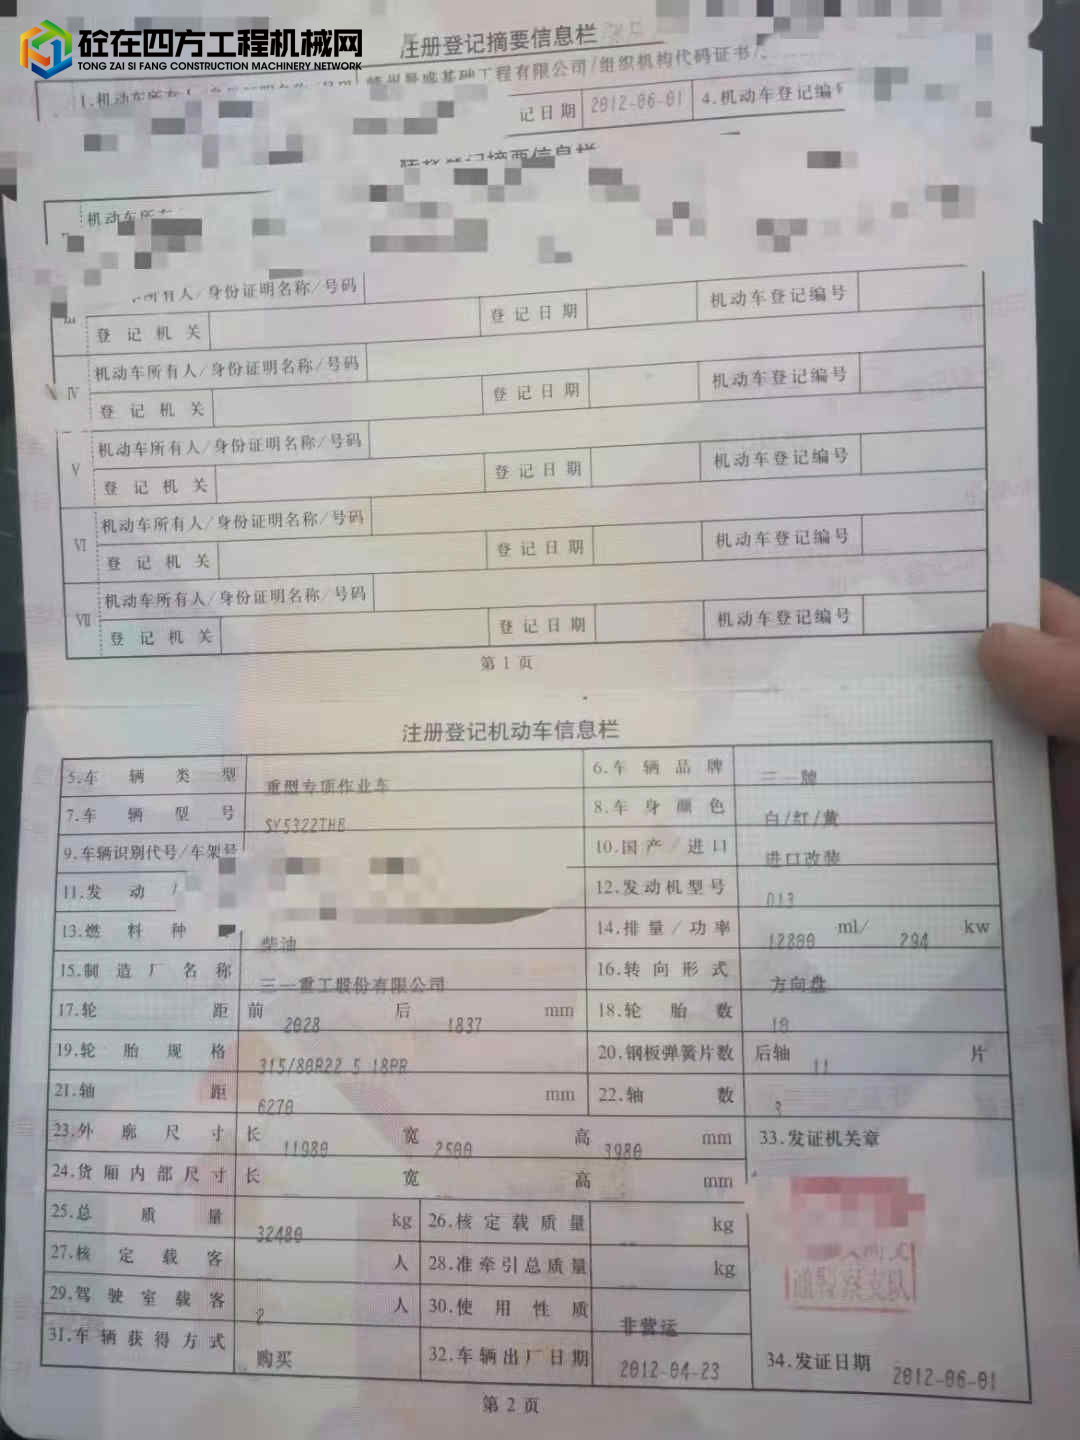 砼在四方工程机械网
TONG ZAI SI FANG CONSTRUCTION MACHINERY NETWORK
注册登记摘要信息栏
1.机动车所有人/身份证明名称/号码 基础工程有限公司/组织机构代码证书/
记日期 2012-06-01 4.机动车登记编号
登记摘要信息栏
机动车所有
所有人/身份证明名称/号码
III 登记机关 登记日期 机动车登记编号
IV 机动车所有人/身份证明名称/号码
登记机关 登记日期 机动车登记编号
V 机动车所有人/身份证明名称/号码
登记机关 登记日期 机动车登记编号
VI 机动车所有人/身份证明名称/号码
登记机关 登记日期 机动车登记编号
VII 机动车所有人/身份证明名称/号码
登记机关 登记日期 机动车登记编号
第1页
注册登记机动车信息栏
5.车辆类型 重型专项作业车 6.车辆品牌 三一牌
7.车辆型号 SY5322THB 8.车身颜色 白/红/黄
9.车辆识别代号/车架号 10.国产/进口 进口改装
11.发动 12.发动机型号 D13
13.燃料种 柴油 14.排量/功率 12800 ml/ 294 kw
15.制造厂名称 三一重工股份有限公司 16.转向形式 方向盘
17.轮距 前 2028 后 1837 mm 18.轮胎数 10
19.轮胎规格 315/80R22.5 18PR 20.钢板弹簧片数 后轴 11 片
21.轴距 6270 mm 22.轴数 3
23.外廓尺寸 长 11980 宽 2500 高 3980 mm 33.发证机关章
24.货厢内部尺寸 长 宽 高 mm
25.总质量 32480 kg 26.核定载质量 -- kg
27.核定载客 -- 人 28.准牵引总质量 -- kg
通警察支队
29.驾驶室载客 2 人 30.使用性质 非营运
31.车辆获得方式 购买 32.车辆出厂日期 2012-04-23 34.发证日期 2012-06-01
第2页